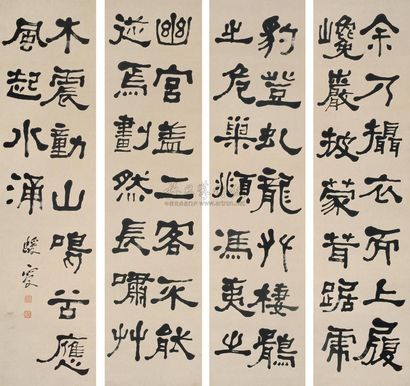 余乃攝衣而上履
巉巖披蒙茸踞虎
豹登虬龍艸棲鶻
之危巢頫馮夷之
幽宮盖二客不能
從焉劃然長嘯艸
木震動山鳴谷應
風起水涌